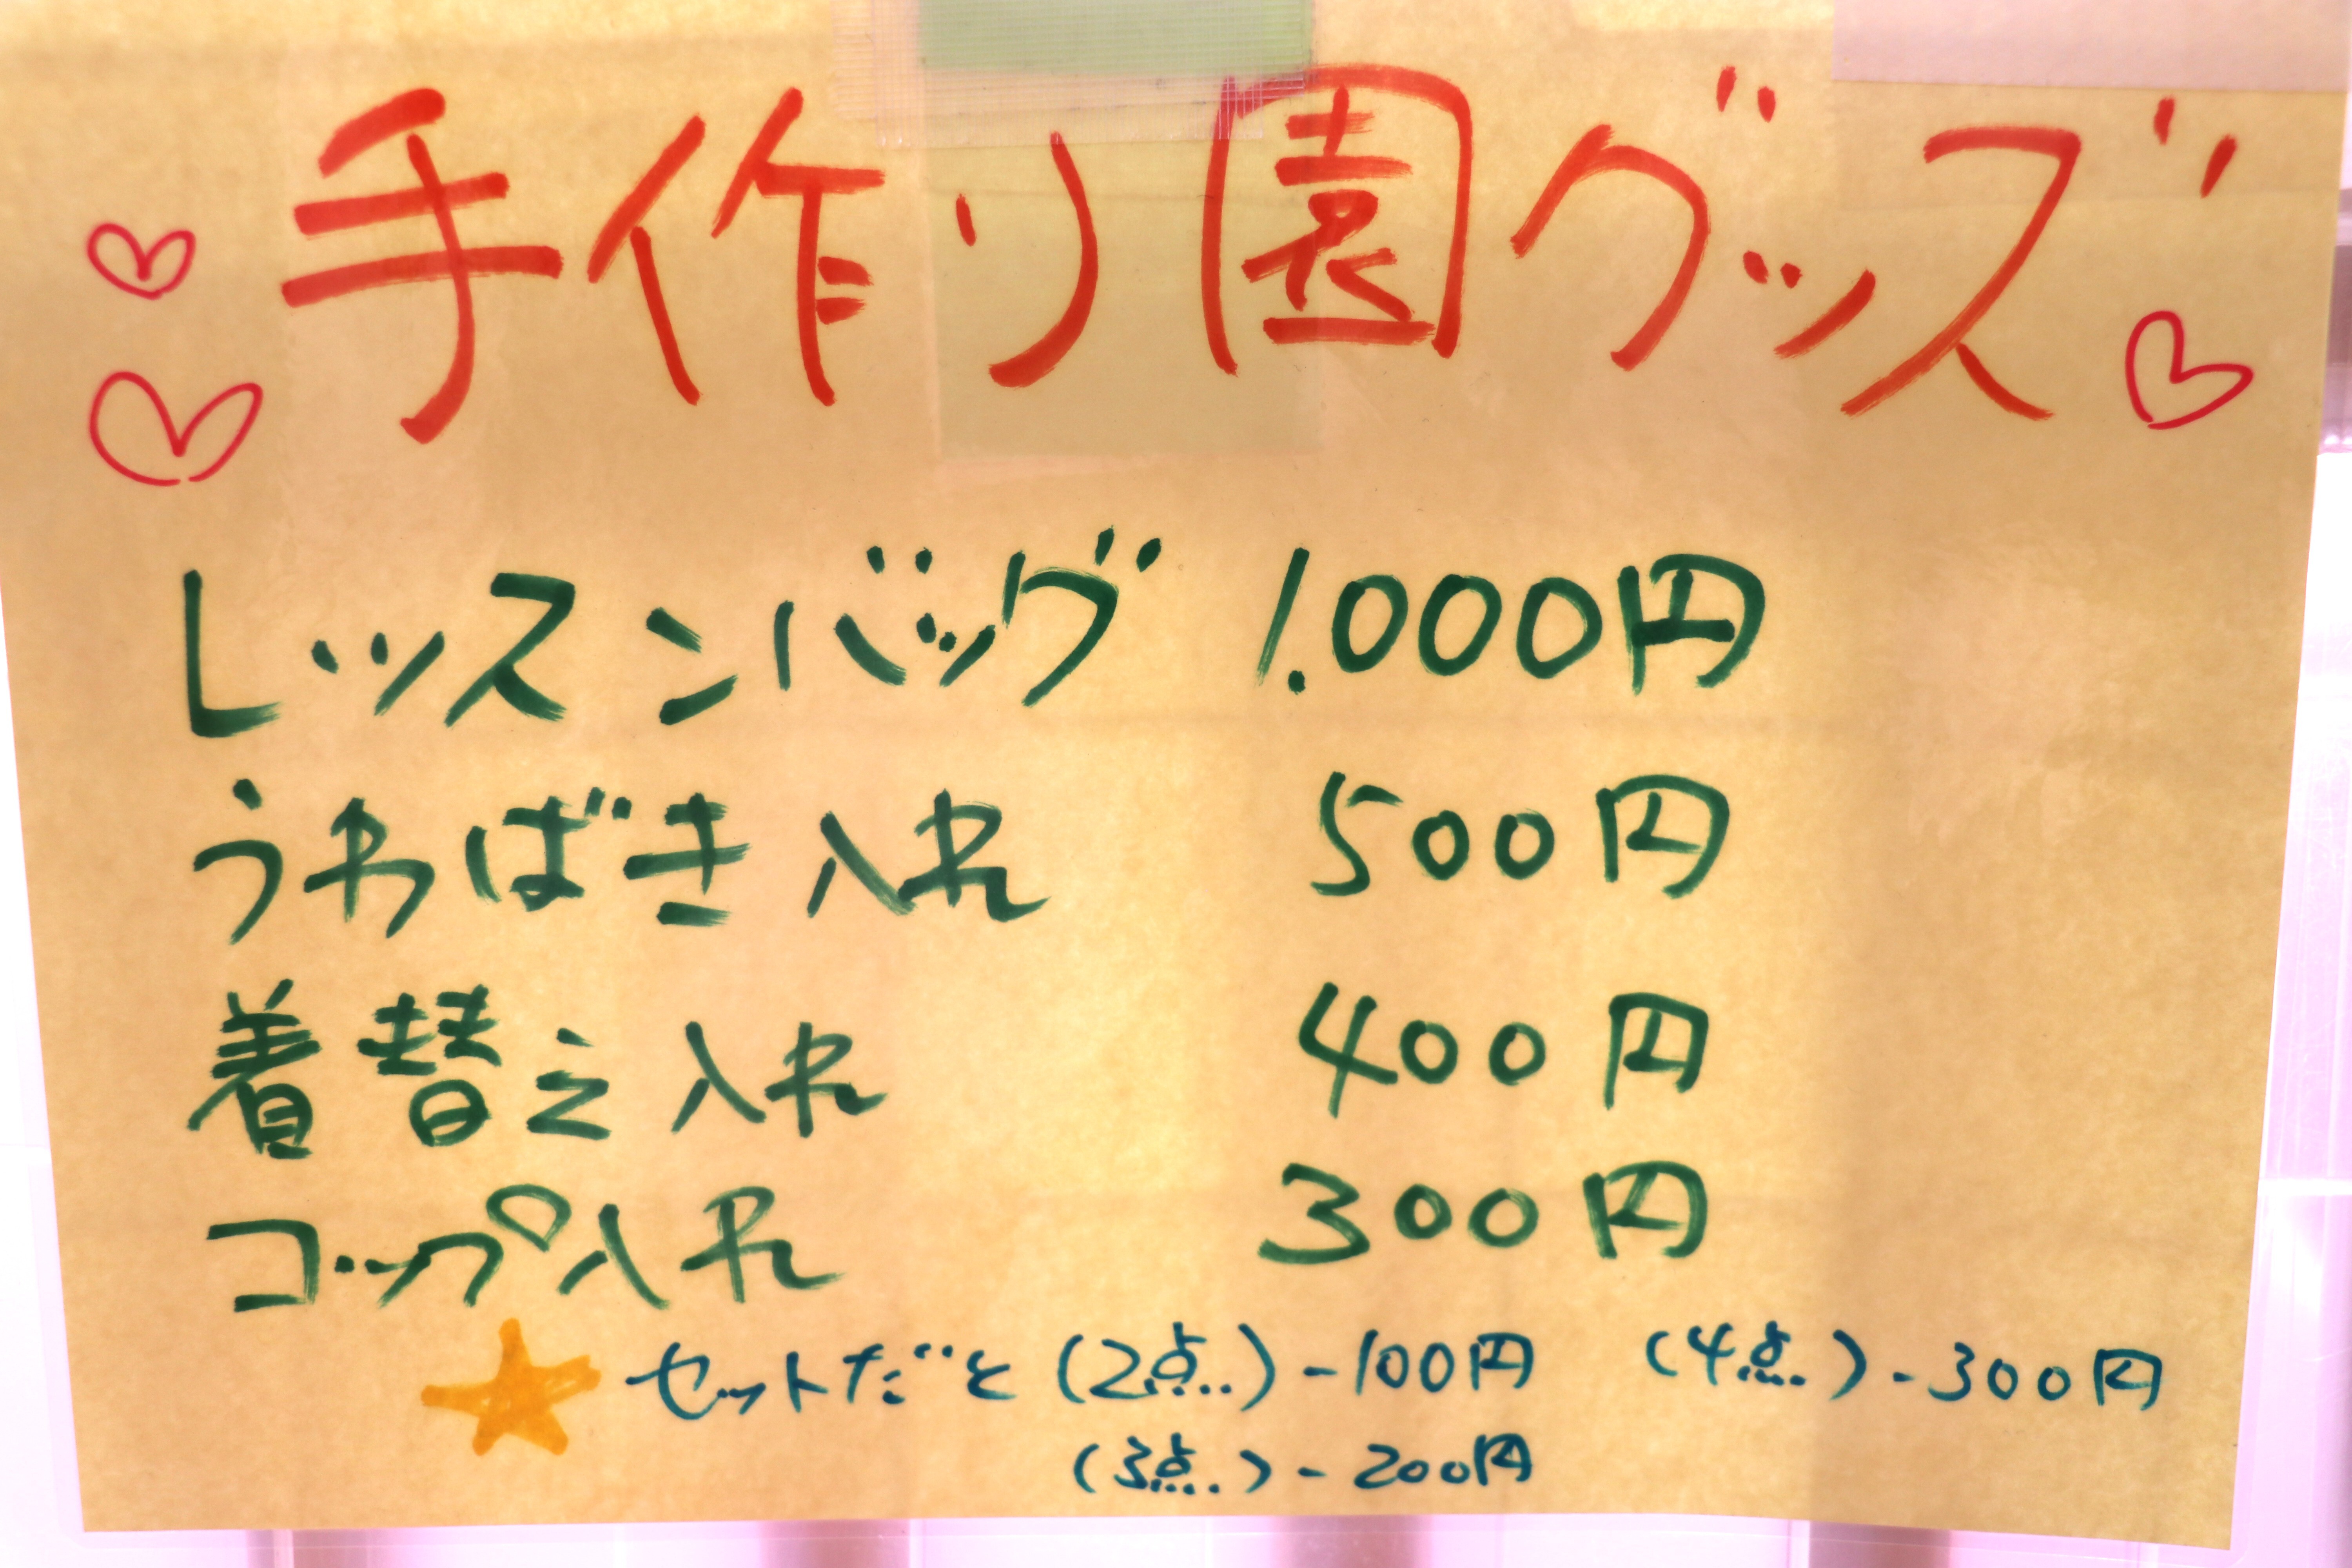 手作り園グッズ
レッスンバッグ 1.000円
うわばき入れ 500円
着替え入れ 400円
コップ入れ 300円
セットだと (2点) -100円 (4点) -300円
(3点) -200円